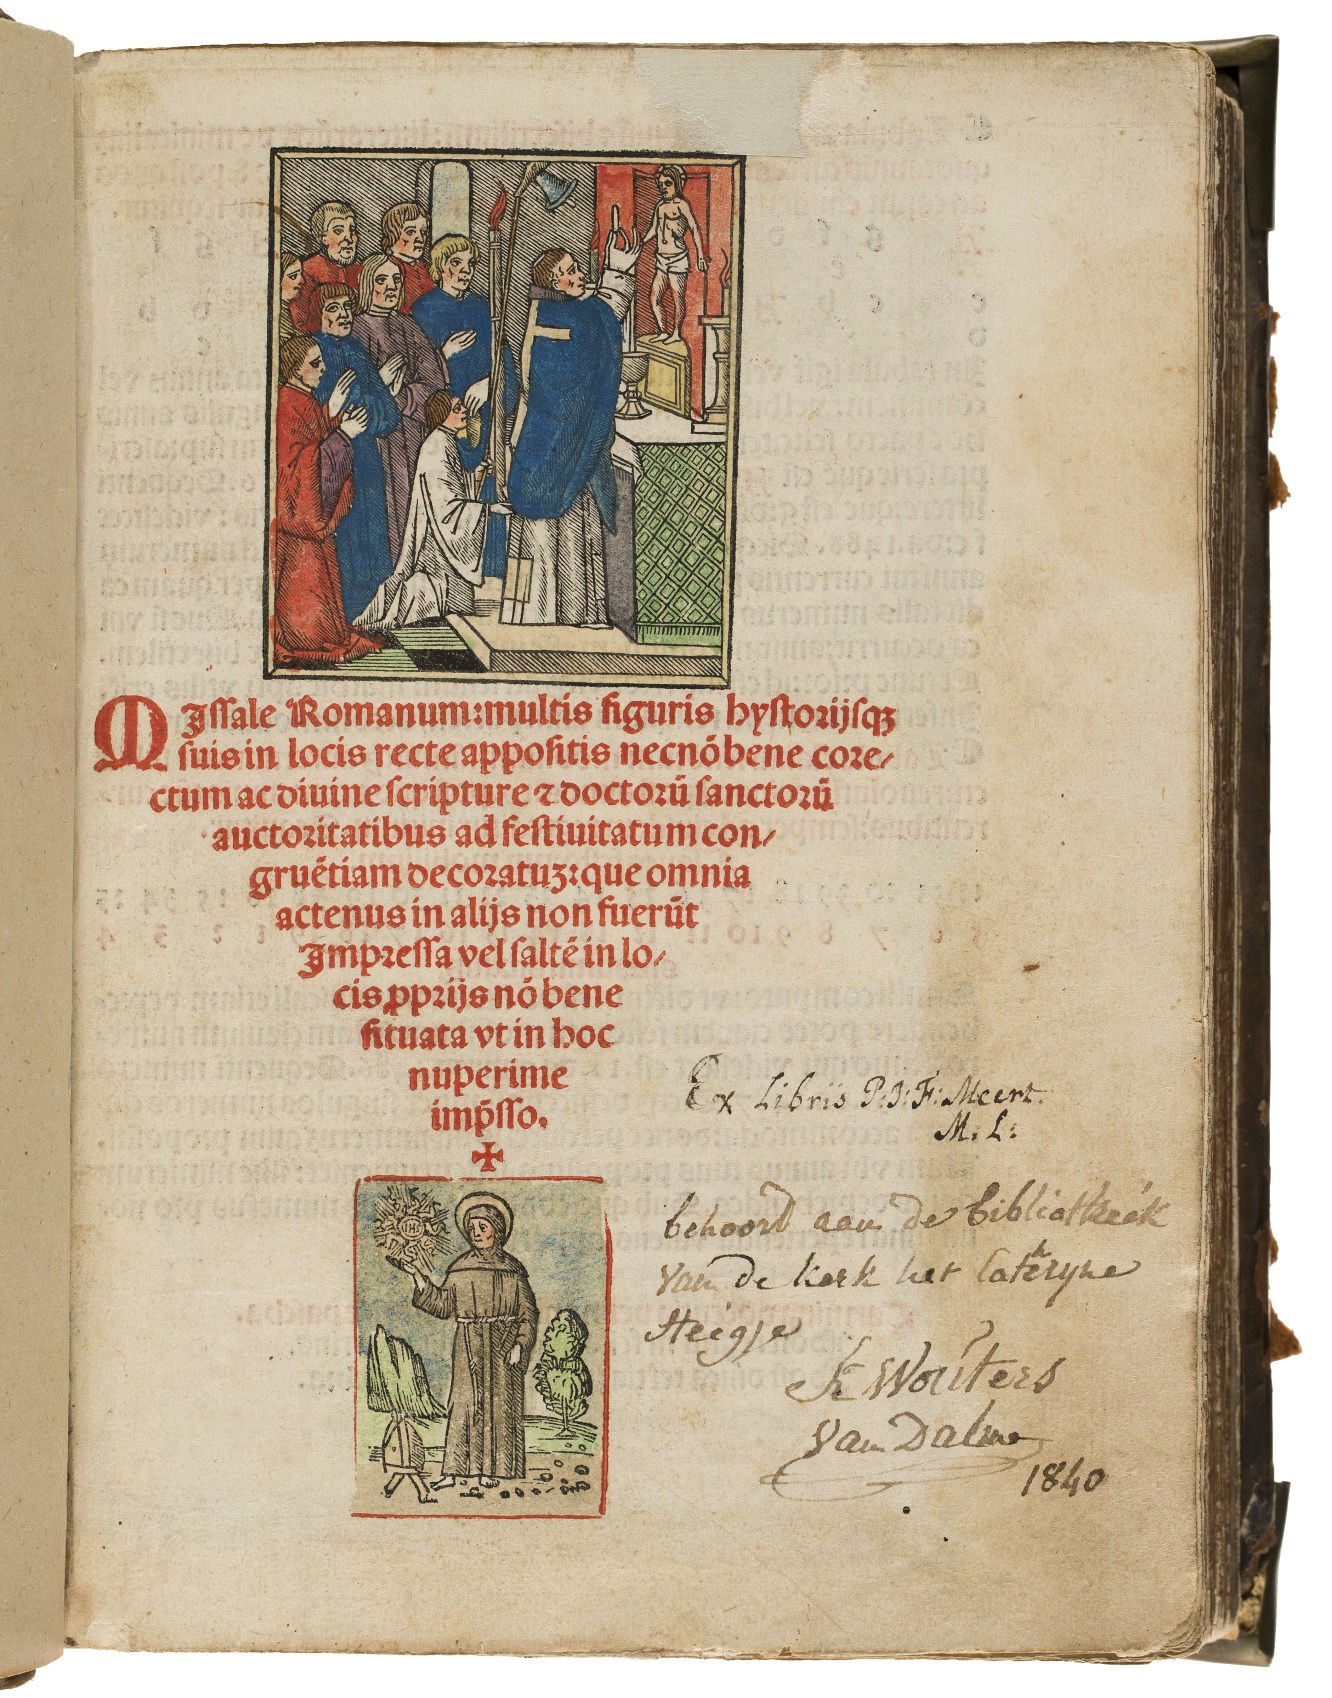 MJssale Romanum:multis figuris hystorijsqꝫ
suis in locis recte appositis necnō bene core/
ctum ac diuine scripture ⁊ doctorū sanctorū
auctoritatibus ad festiuitatum con/
gruētiam decoratuꝫ: que omnia
actenus in alijs non fuerūt
Jmpressa vel saltē in lo/
cis ꝓprijs nō bene
situata vt in hoc
nuperime
imp̄sso.
IHS
Ex Libris P: J: F: Meert.
M. L:
behoord aan de bibliotheek
van de kerk het Catheryne
steegje
Wouters
van Dalme
1840